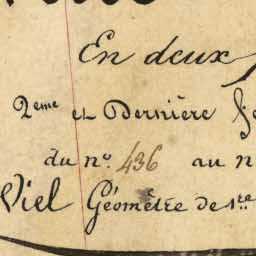 En deux
2eme et Dernière
du no. 436 au n
Viel Géomètre de 1re